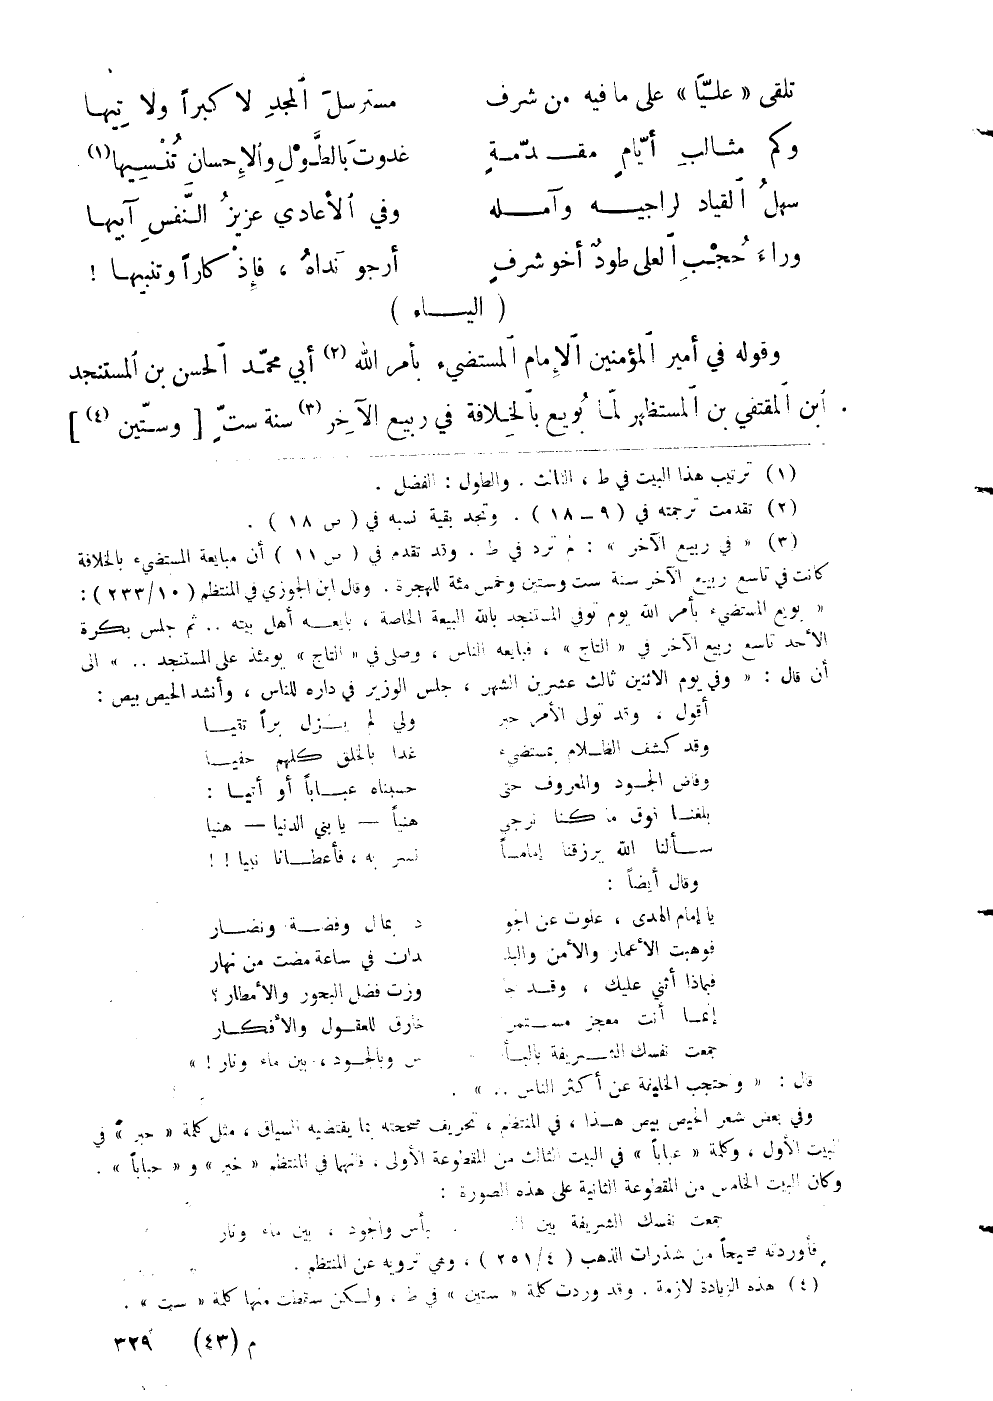 تلقى « عليّاً » على ما فيه من شرف مسترسلَ ٱلمجدِ لا كبراً ولا تِيها
وكم مثالبِ أيّامٍ مقدّمةٍ غدوتَ بٱلطَّوْلِ وٱلإحسان تُنْسِيها(١)
سهلُ ٱلقياد لراجيه وآمله وفي ٱلأعادي عزيزُ ٱلنَّفسِ آبيها
وراءَ حُجْبِ ٱلعلى طودٌ أخو شرفٍ أرجو نداهُ ، فإِذْ كاراً وتنبيها !
( اليــاء )
وقوله في أمير ٱلمؤمنين ٱلإمام ٱلمستضيء بأمر الله (٢) أبي محمّد ٱلحسن بن ٱلمستنجد
ٱبن ٱلمقتفي بن ٱلمستظهر لمّا بُويع بٱلخلافة في ربيع الآخِر (٣) سنة ستّ [ وستّين (٤) ]
(١) ترتيب هذا البيت في ط ، الثالث . والطول : الفضل .
(٢) تقدمت ترجمته في ( ٩ ــ ١٨ ) . وتجد بقية نسبه في ( ص ١٨ ) .
(٣) « في ربيع الآخر » : لم ترد في ط . وقد تقدم في ( ص ١١ ) أن مبايعة المستضيء بالخلافة
كانت في تاسع ربيع الآخر سنة ست وستين وخمس مئة للهجرة . وقال ابن الجوزي في المنتظم ( ١٠/ ٢٣٣ ) :
« بويع المستضيء بأمر الله يوم توفي المستنجد بالله البيعة الخاصة ، بايعه أهل بيته .. ثم جلس بكرة
الأحد تاسع ربيع الآخر في « التاج » ، فبايعه الناس ، وصلى في « التاج » يومئذ على المستنجد .. » الى
أن قال : « وفي يوم الاثنين ثالث عشرين الشهر ، جلس الوزير في داره للناس ، وأنشد الحيص بيص :
أقول ، وقد تولى الأمر حبر ولي لم يــزل براً تقيــا
وقد كشف الظلام بمستضيء غدا بالخلق كلهم حفيــا
وفاض الجــود والمعروف حتى حسبناه عبــاباً أو أتيــا :
بلغنــا فوق ما كنا نرجي هنيأً — يا بني الدنيا — هنيا
ســألنا الله يرزقنا إمامــاً نسر به ، فأعطــانا نبيا ! !
وقال أيضاً :
يا إمام الهدى ، علوت عن الجو د بمال وفضــة ونضــار
فوهبت الأعمار والأمن والبلـ دان في ساعة مضت من نهار
فبماذا أثني عليك ، وقــد جا وزت فضل البحور والأمطار ؟
إنمــا أنت معجز مســتمر خارق للعقــول والأفكــار
جمعت نفسك الشــريفة بالبأ س وبالجــود ، بين ماء ونار ! »
قال : « واحتجب الخليفة عن أكثر الناس .. » .
وفي بعض شعر الحيص بيص هــذا ، في المنتظم ، تحريف صححته بما يقتضيه السياق ، مثل كلمة « حبر » في
البيت الأول ، وكلمة « عباباً » في البيت الثالث من المقطوعة الأولى ، فانهما في المنتظم « خير » و « حباباً » .
وكان البيت الخامس من المقطوعة الثانية على هذه الصورة :
جمعت نفسك الشريفة بين الـ ـبأس والجود ، بين ماء ونار
فأوردته صحيحاً من شذرات الذهب ( ٤/ ٢٥١ ) ، وهي ترويه عن المنتظم .
(٤) هذه الزيادة لازمة . وقد وردت كلمة « ستين » في ط ، ولكن سقطت منها كلمة « ست » .
م (٤٣) ٣٢٩